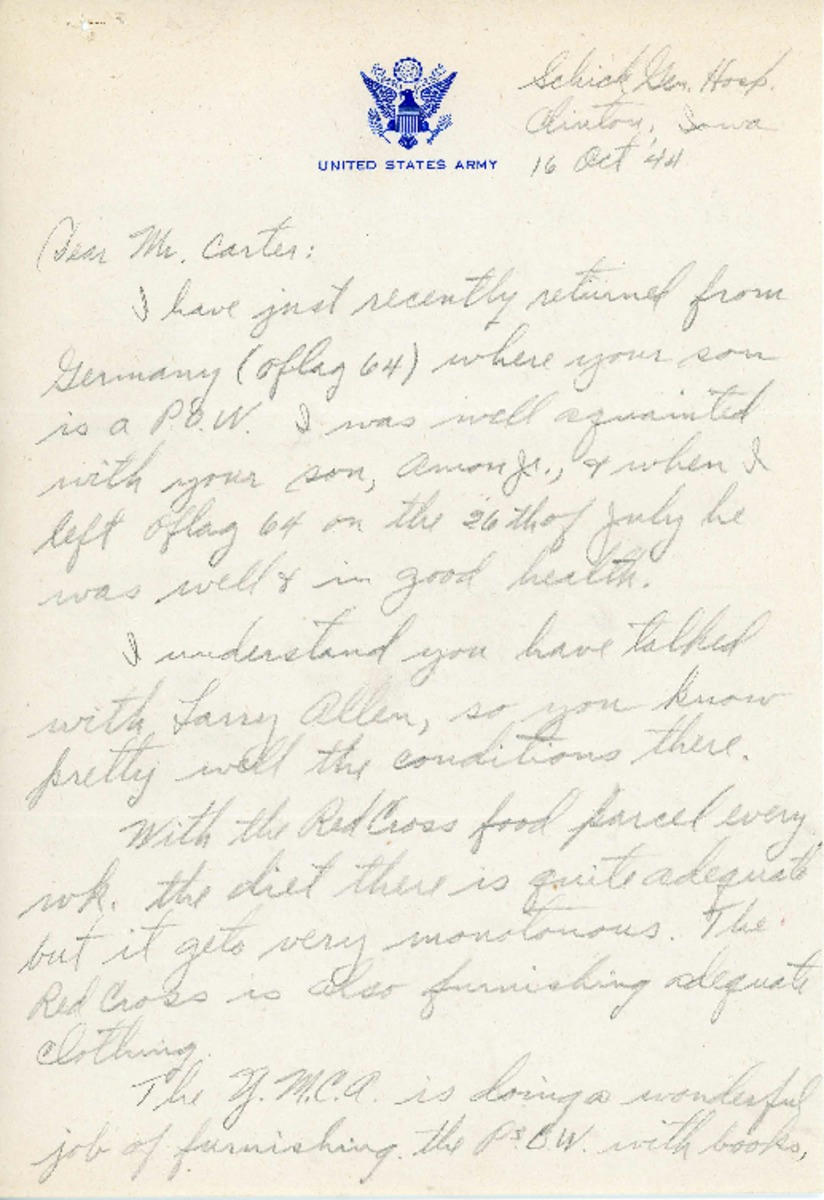 Schick Gen. Hosp.
Clinton, Iowa
16 Oct '44
UNITED STATES ARMY
Dear Mr. Carter:
I have just recently returned from
Germany (Oflag 64) where your son
is a P.O.W. I was well aquainted
with your son, Amon Jr., & when I
left Oflag 64 on the 26th of July he
was well & in good health.
I understand you have talked
with Larry Allen, so you know
pretty well the conditions there.
With the Red Cross food parcel every
wk. the diet there is quite adequate
but it gets very monotonous. The
Red Cross is also furnishing adequate
clothing.
The Y.M.C.A. is doing a wonderful
job of furnishing the Ps.O.W. with books,